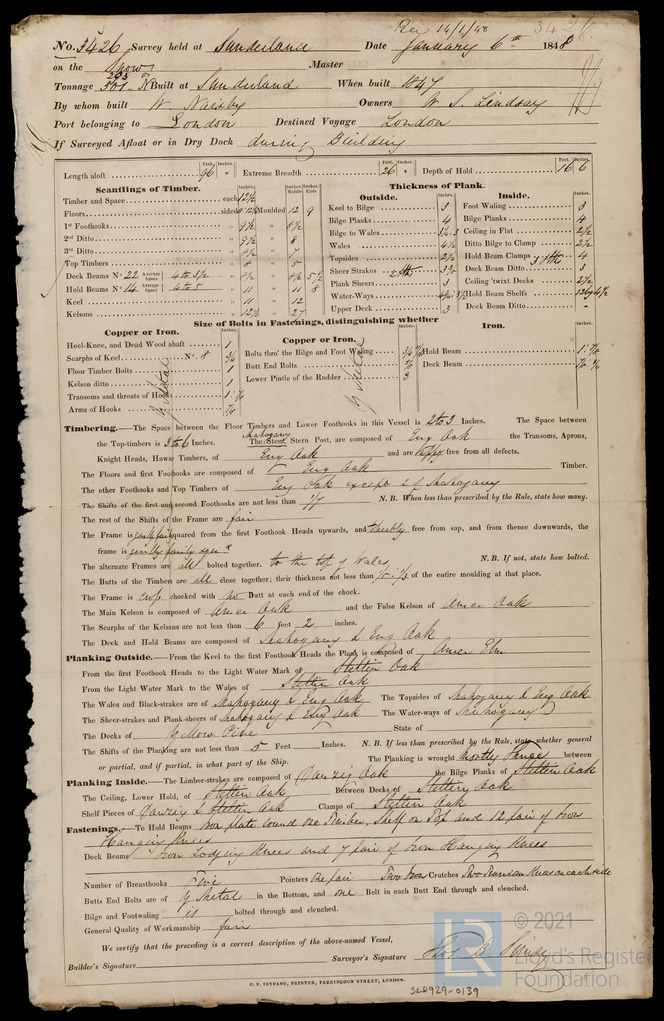 Rec 14/1/48 3426
No. 3426 Survey held at Sunderland Date January 6th 1848
on the Snow Master
Tonnage 303 301 N Built at Sunderland When built 1847
By whom built W. Naizby Owners W. S. Lindsay
Port belonging to London Destined Voyage London
If Surveyed Afloat or in Dry Dock during Building
Feet. Inches. Feet. Inches. Feet. Inches.
Length aloft 96 " Extreme Breadth 26 " Depth of Hold 16 6
Scantlings of Timber. Thickness of Plank.
Outside. Inside.
Timber and Space each 12 1/2
Floors sided Moulded 12 9
1st Foothooks 9 1/2 8 1/2
2nd Ditto 9 1/2 8
3rd Ditto 7
Top Timbers 5
Deck Beams No. 22 Average Space 4 to 3/2 8 1/2 5 1/2
Hold Beams No. 14 Average Space 4 to 5 11 11 8
Keel 11 12
Kelsons 12 1/2 27
Keel to Bilge 3
Bilge Planks 4
Bilge to Wales
Wales 4 1/2
Topsides 2 1/2
Sheer Strakes
Plank Sheers 3
Water-Ways
Upper Deck 3
Foot Waling 3
Bilge Planks 4
Ceiling in Flat 2 1/2
Ditto Bilge to Clamp 2 1/2
Hold Beam Clamps 4
Deck Beam Ditto 3
Ceiling 'twixt Decks 2 1/2
Hold Beam Shelfs
Deck Beam Ditto -
Size of Bolts in Fastenings, distinguishing whether
Copper or Iron. Copper or Iron. Iron.
Heel-Knee, and Dead Wood abaft 1
Scarphs of Keel No. 8 3/4
Floor Timber Bolts 1
Kelson ditto 1
Transoms and throats of Hooks 1
Arms of Hooks 7/8
Y Metal
Bolts thro' the Bilge and Foot Waling 3/4
Butt End Bolts
Lower Pintle of the Rudder 3
Y Metal
Hold Beam
Deck Beam
Timbering.—The Space between the Floor Timbers and Lower Foothooks in this Vessel is 2 to 3 Inches. The Space between
the Top-timbers is 3 to 6 Inches. Mahogany The Stem, Stern Post, are composed of Eng Oak the Transoms, Aprons,
Knight Heads, Hawse Timbers, of Eng Oak and are free from all defects.
The Floors and first Foothooks are composed of Eng Oak Timber.
The other Foothooks and Top Timbers of Eng Oak except 2 of Mahogany
The Shifts of the first and second Foothooks are not less than 1/7 N. B. When less than prescribed by the Rule, state how many.
The rest of the Shifts of the Frame are fair
The Frame is squared from the first Foothook Heads upwards, and free from sap, and from thence downwards, the
frame is
The alternate Frames are all bolted together. to the top of Wales N. B. If not, state how bolted.
The Butts of the Timbers are all close together; their thickness not less than of the entire moulding at that place.
The Frame is chocked with Butt at each end of the chock.
The Main Kelson is composed of Amer Oak and the False Kelson of Amer Oak
The Scarphs of the Kelsons are not less than 6 feet 2 inches.
The Deck and Hold Beams are composed of Mahogany & Eng Oak
Planking Outside.—From the Keel to the first Foothook Heads the Plank is composed of Amer Elm
From the first Foothook Heads to the Light Water Mark of Stettin Oak
From the Light Water Mark to the Wales of Stettin Oak
The Wales and Black-strakes are of Mahogany & Eng Oak The Topsides of Mahogany & Eng Oak
The Sheer-strakes and Plank-sheers of Mahogany & Eng Oak The Water-ways of Mahogany
The Decks of Yellow Pine State of
The Shifts of the Planking are not less than 5 Feet Inches. N. B. If less than prescribed by the Rule, state whether general
or partial, and if partial, in what part of the Ship. The Planking is wrought mostly three between
Planking Inside.—The Limber-strakes are composed of Danzig Oak the Bilge Planks of Stettin Oak
The Ceiling, Lower Hold, of Stettin Oak Between Decks of Stettin Oak
Shelf Pieces of Danzig & Stettin Oak Clamps of Stettin Oak
Fastenings.—To Hold Beams Iron plate round one Timber, Shelf on Top and 12 pair of Iron
Hanging Knees
Deck Beams Iron Lodging Knees and 7 pair of Iron Hanging Knees
Number of Breasthooks Five Pointers One pair Two Iron Crutches Two Transom Knees on each side
Butts End Bolts are of Y Metal in the Bottom, and one Bolt in each Butt End through and clenched.
Bilge and Footwaling is bolted through and clenched.
General Quality of Workmanship fair
We certify that the preceding is a correct description of the above-named Vessel,
Builder's Signature Surveyor's Signature
C. F. SEYFANG, PRINTER, FARRINGDON STREET, LONDON.
SLD929-0139
LR © 2021
Lloyd's Register
Foundation